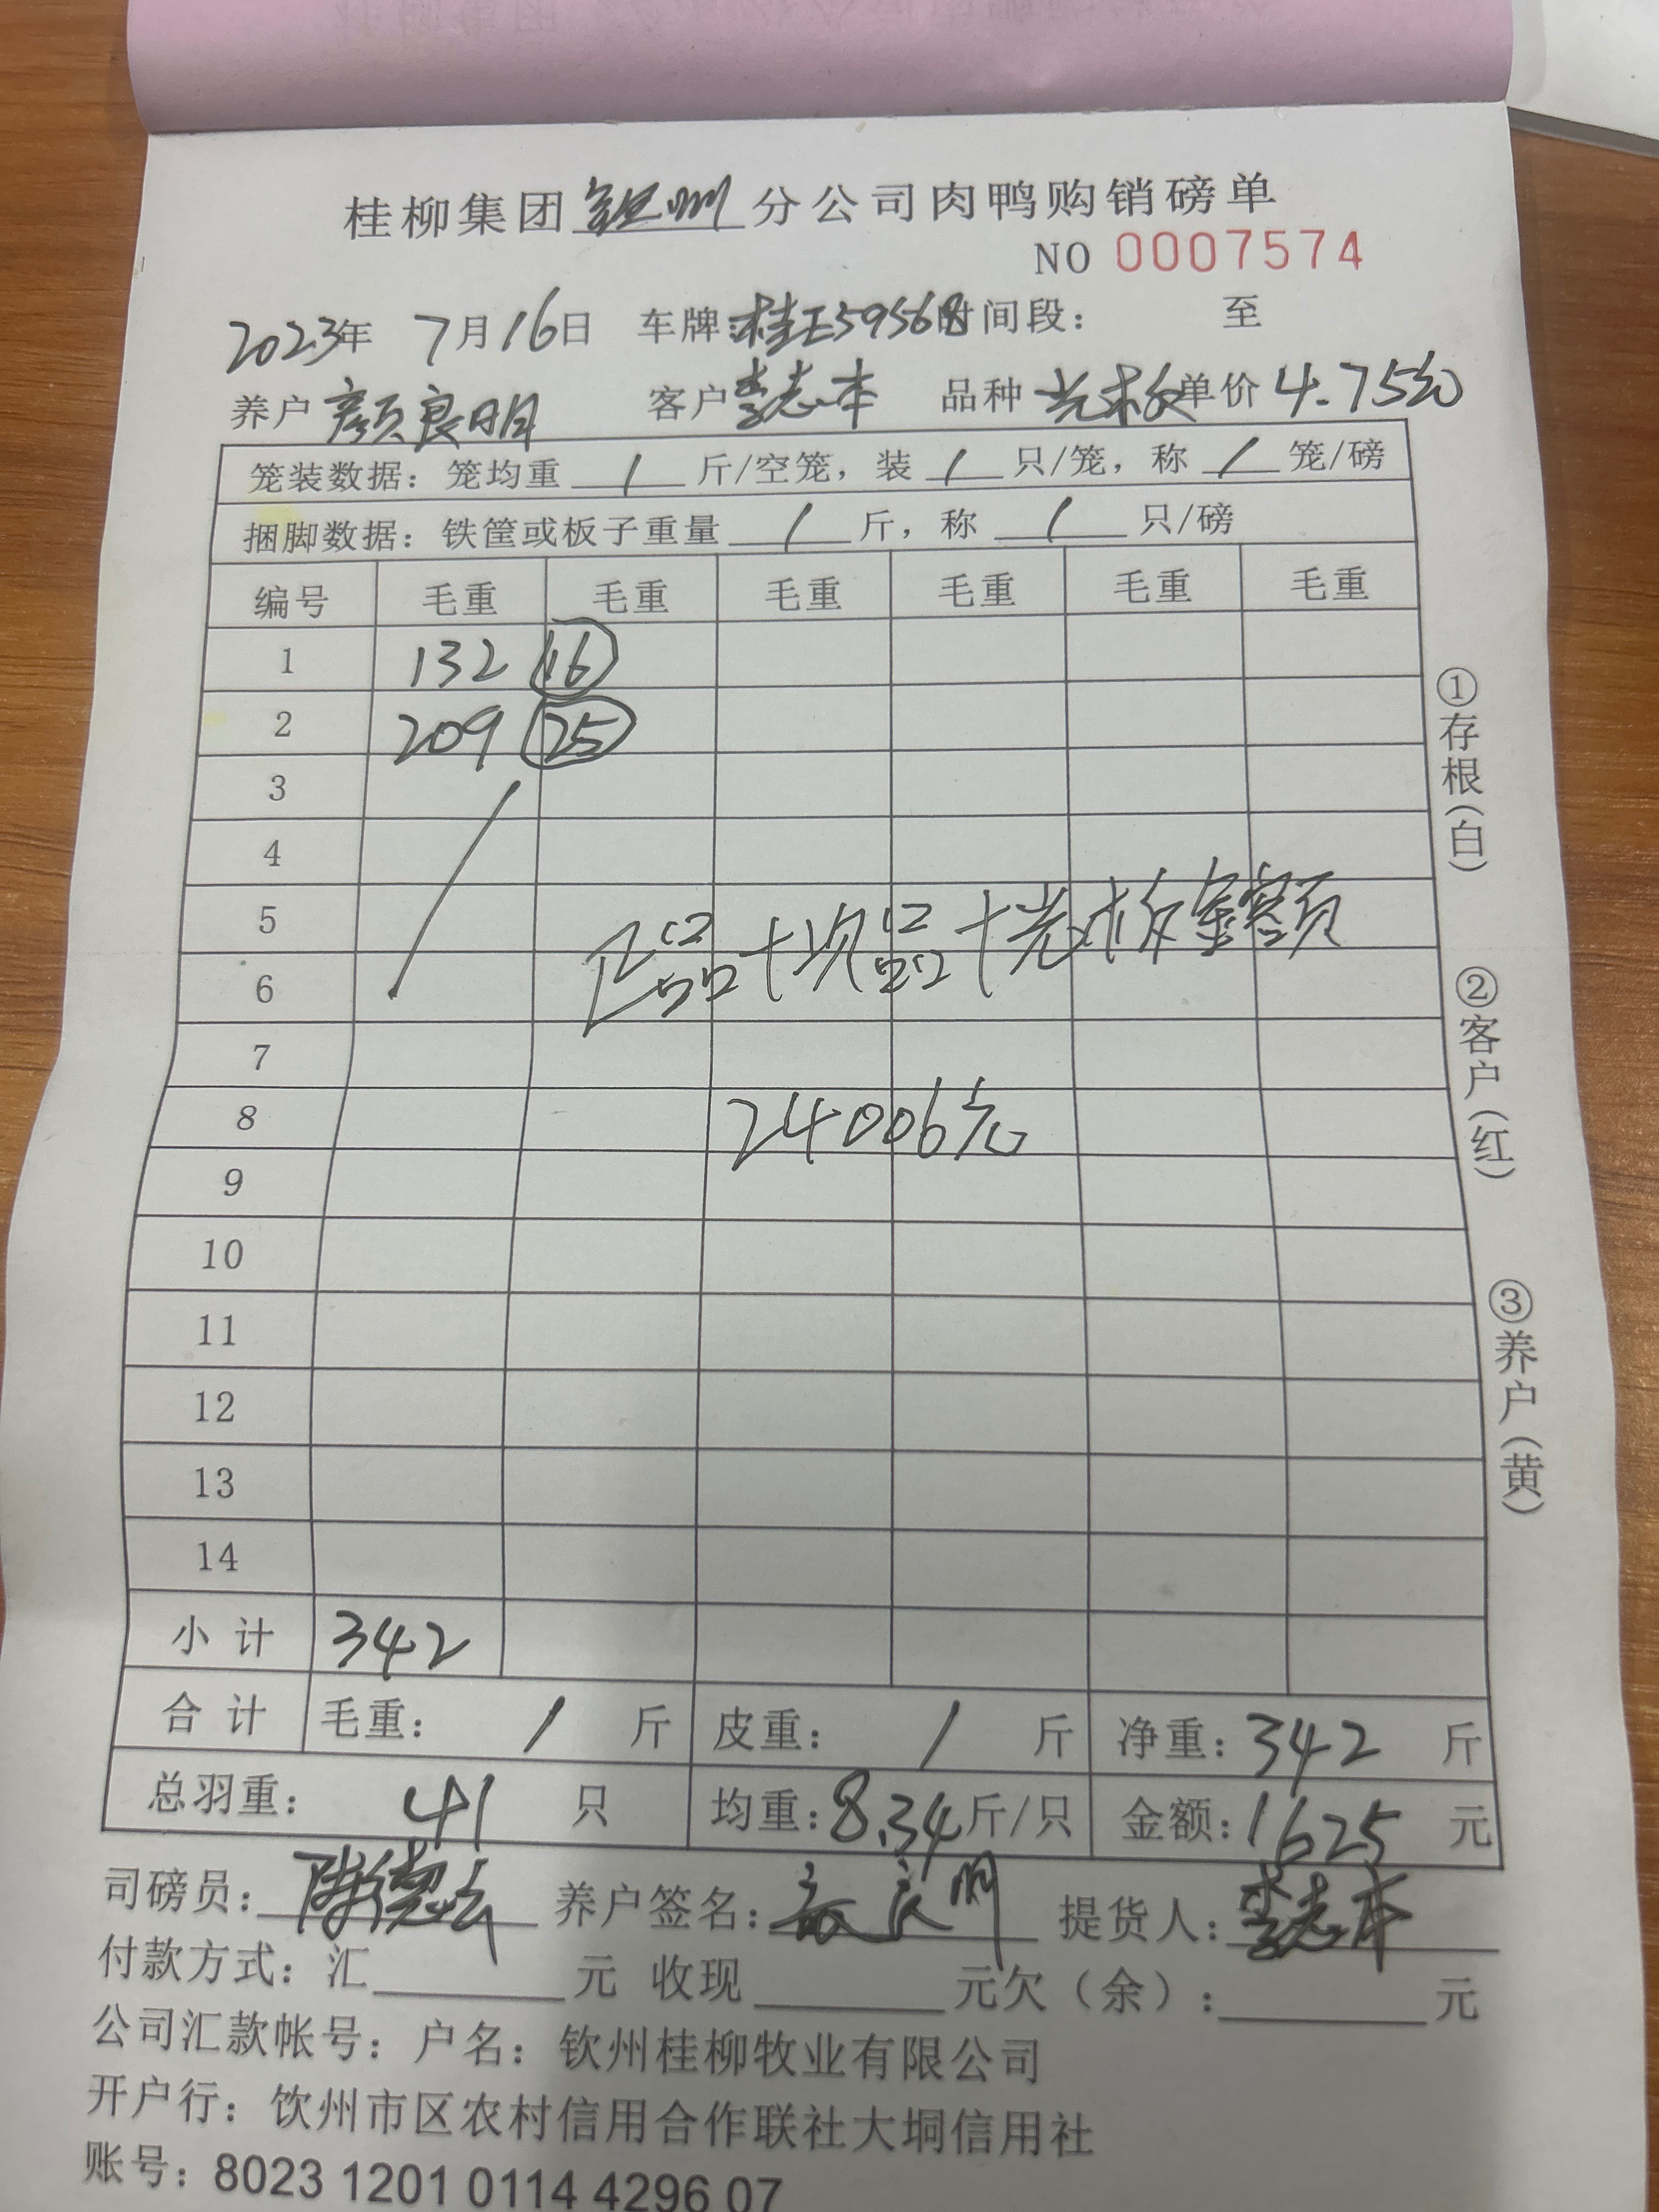 桂柳集团钦州分公司肉鸭购销磅单
NO 0007574
2023年 7月16日 车牌:桂E59568时间段: 至
养户 颜良明 客户 李志本 品种 光板 单价 4.75元
笼装数据: 笼均重 / 斤/空笼, 装 / 只/笼, 称 / 笼/磅
捆脚数据: 铁筐或板子重量 / 斤, 称 / 只/磅
编号 毛重 毛重 毛重 毛重 毛重 毛重
1 132 16
2 209 25
3
4
5
正品+次品+光板金额
6
7
8 24006元
9
10
11
12
13
14
小计 342
合计 毛重: / 斤 皮重: / 斤 净重: 342 斤
总羽重: 41 只 均重: 8.34 斤/只 金额: 1625 元
司磅员: 陈德 养户签名: 颜良明 提货人: 李志本
付款方式: 汇 元 收现 元欠(余): 元
公司汇款帐号: 户名: 钦州桂柳牧业有限公司
开户行: 饮州市区农村信用合作联社大垌信用社
账号: 8023 1201 0114 4296 07
①存根(白)
②客户(红)
③养户(黄)